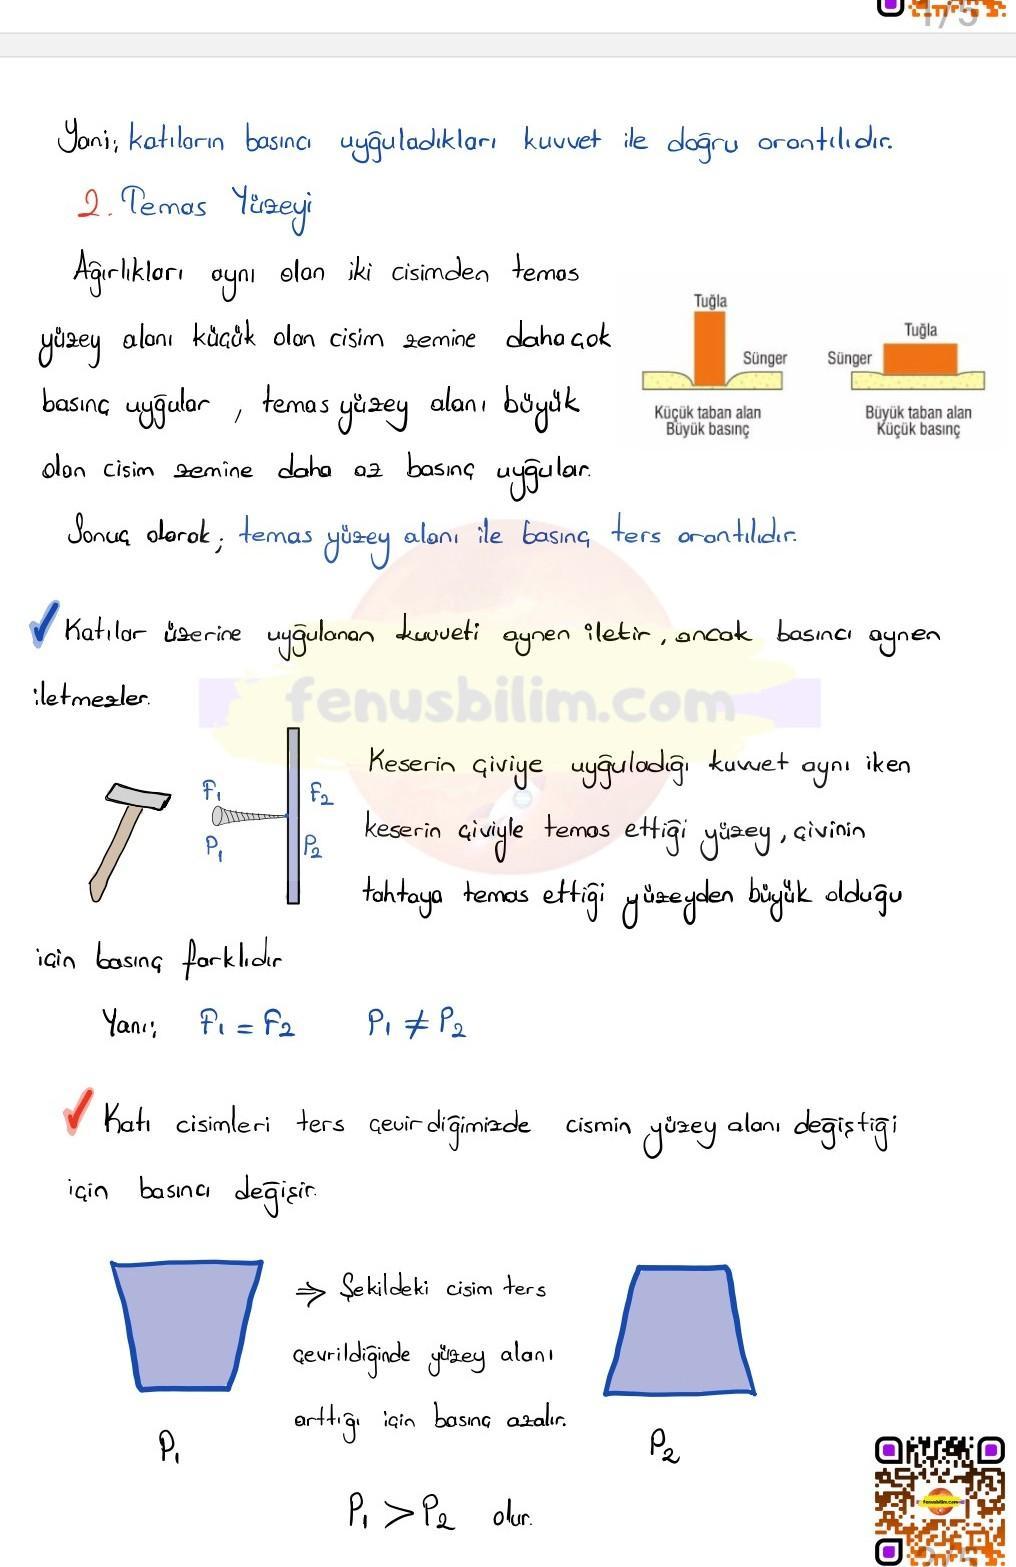 1/5
Yani; katıların basıncı uyguladıkları kuvvet ile doğru orantılıdır.
2. Temas Yüzeyi
Ağırlıkları aynı olan iki cisimden temas
yüzey alanı küçük olan cisim zemine daha çok
basınç uygular, temas yüzey alanı büyük
olan cisim zemine daha az basınç uygular.
Tuğla
Sünger
Küçük taban alan
Büyük basınç
Tuğla
Sünger
Büyük taban alan
Küçük basınç
Sonuç olarak; temas yüzey alanı ile basınç ters orantılıdır.
Katılar üzerine uygulanan kuvveti aynen iletir, ancak basıncı aynen
iletmezler.
fenusbilim.com
F₁
P₁
F₂
P₂
Keserin çiviye uyguladığı kuvvet aynı iken
keserin çiviyle temas ettiği yüzey, çivinin
tahtaya temas ettiği yüzeyden büyük olduğu
için basınç farklıdır
Yani; F₁ = F₂ P₁ ≠ P₂
Katı cisimleri ters çevirdiğimizde cismin yüzey alanı değiştiği
için basıncı değişir.
⇒ Şekildeki cisim ters
çevrildiğinde yüzey alanı
arttığı için basınç azalır.
P₁
P₂
P₁ > P₂ olur.
fenusbilim.com